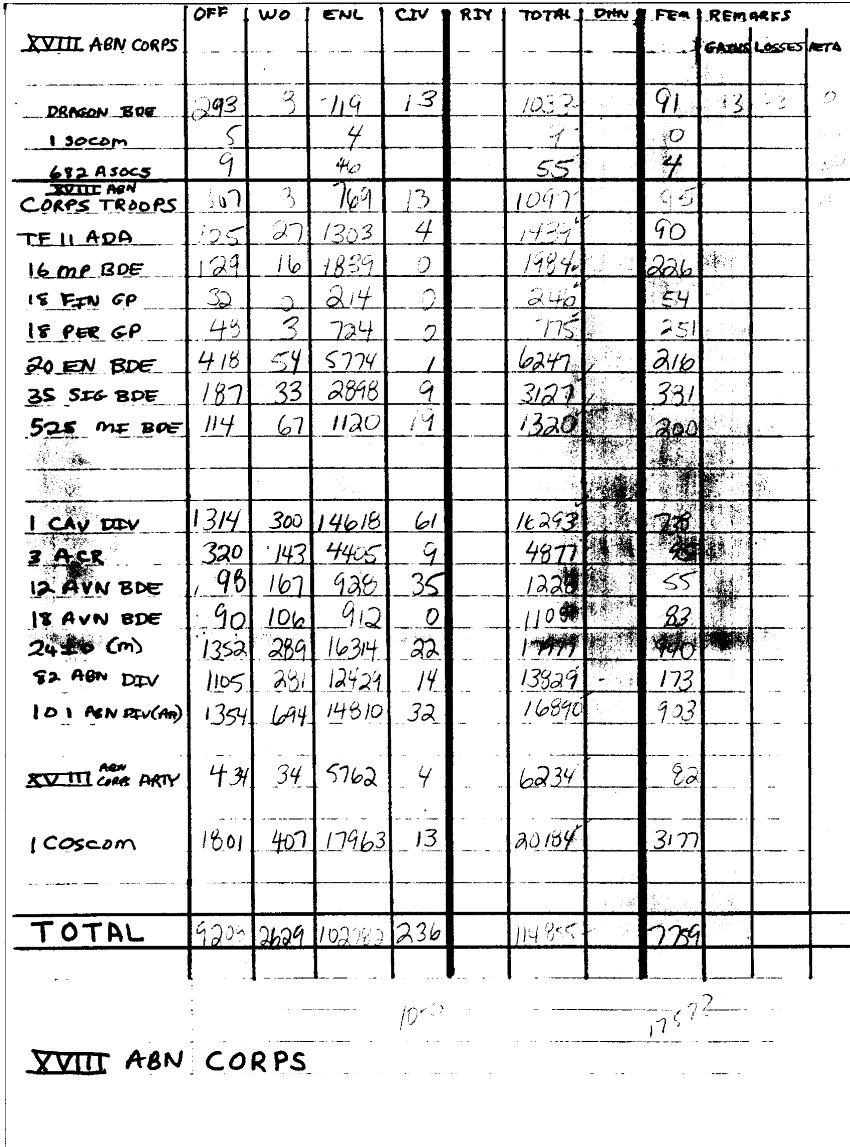 OFF WO ENL CIV RIY TOTAL DHN FEM REMARKS
XVIII ABN CORPS GAINS LOSSES NETA
DRAGON BDE 293 3 719 13 1032 91 13 0
1 SOCOM 5 4 9 0
682 ASOCS 9 46 55 4
XVIII ABN CORPS TROOPS 307 3 769 13 1097 95
TF 11 ADA 125 27 1303 4 1439 90
16 MP BDE 129 16 1839 0 1984 226
18 FIN GP 32 0 214 0 246 54
18 PER GP 48 3 724 0 775 251
20 EN BDE 418 54 5774 1 6247 216
35 SIG BDE 187 33 2898 9 3127 331
525 MI BDE 114 67 1120 19 1320 200
1 CAV DIV 1314 300 14618 61 16293
3 ACR 320 143 4405 9 4877
12 AVN BDE 98 167 928 35 1228 55
18 AVN BDE 90 106 912 0 1108 83
24 ID (M) 1352 289 16314 22
82 ABN DIV 1105 281 12429 14 13829 173
101 ABN DIV(AA) 1354 694 14810 32 16890 903
XVIII ABN CORPS ARTY 434 34 5762 4 6234 82
1 COSCOM 1801 407 17963 13 20184 3177
TOTAL 2629 236 7759
XVIII ABN CORPS